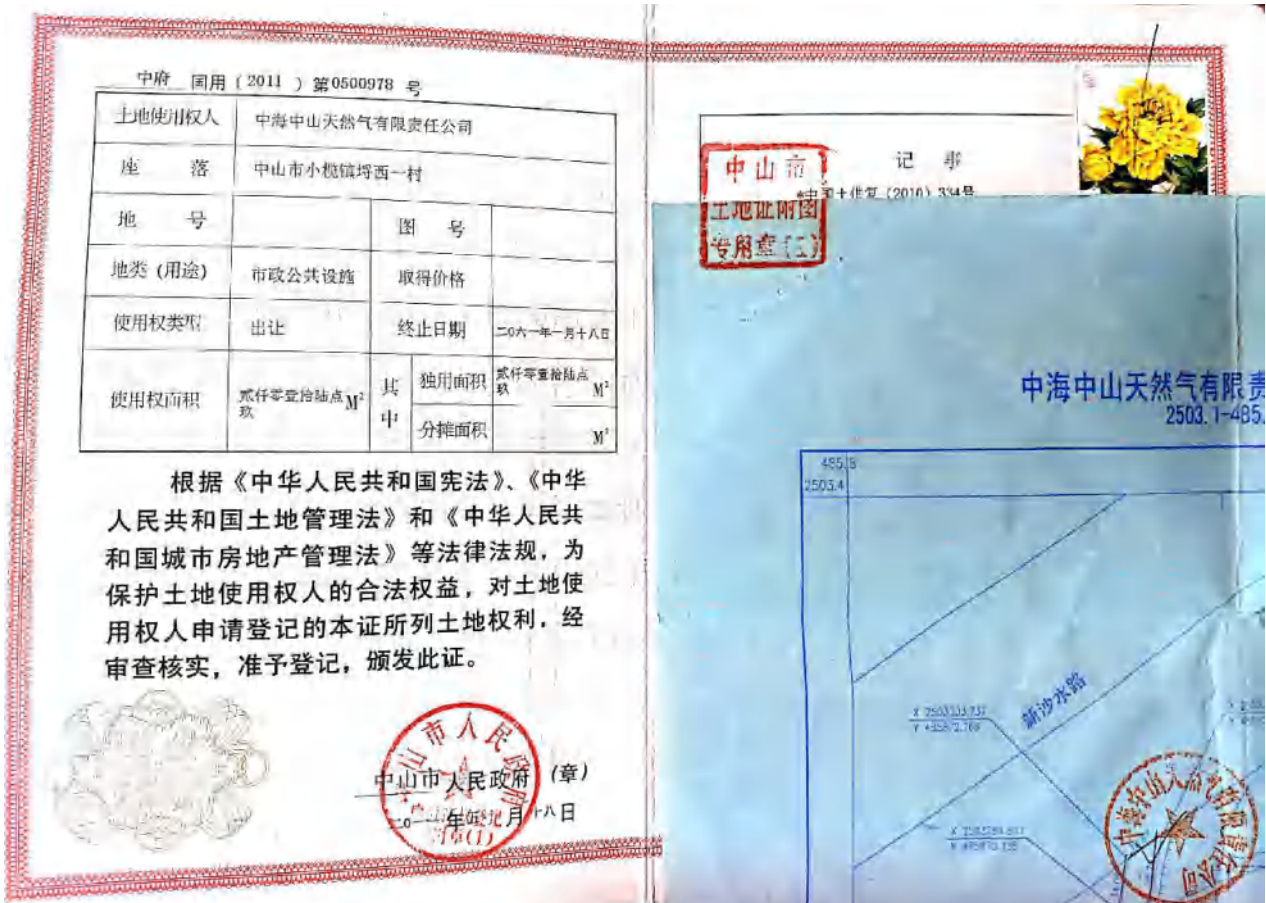 中府 国用 (2011) 第0500978 号
土地使用权人 中海中山天然气有限责任公司
座 落 中山市小榄镇埒西一村
地 号 图 号
地类 (用途) 市政公共设施 取得价格
使用权类型 出让 终止日期 二0六一年一月十八日
使用权面积 贰仟零壹拾陆点玖 M² 其中 独用面积 贰仟零壹拾陆点玖 M²
分摊面积 M²
根据《中华人民共和国宪法》、《中华
人民共和国土地管理法》和《中华人民共
和国城市房地产管理法》等法律法规，为
保护土地使用权人的合法权益，对土地使
用权人申请登记的本证所列土地权利，经
审查核实，准予登记，颁发此证。
中山市人民政府
中山市人民政府 (章)
年 月 十八日
记 事
(2010) 334号
中山市
土地证附图
专用章
中海中山天然气有限责
2503.1-485.
485.
2503.4
新沙水路
中海中山天然气有限责任公司